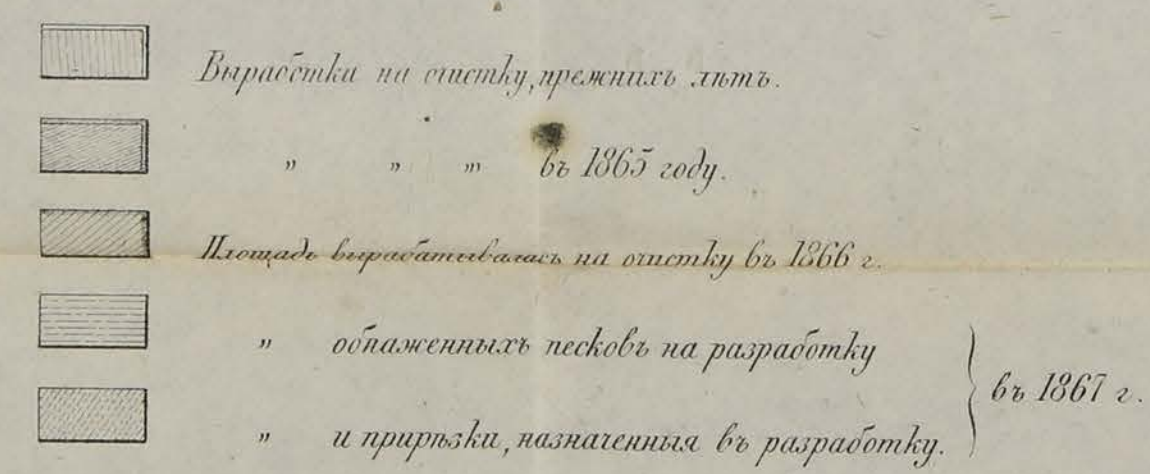 Выработка на очистку, прежнихъ лѣтъ.
„ „ „ въ 1865 году.
Площадь вырабатывалась на очистку въ 1866 г.
„ обнаженныхъ песковъ на разработку
въ 1867 г.
„ и прирѣзки, назначенныя въ разработку.